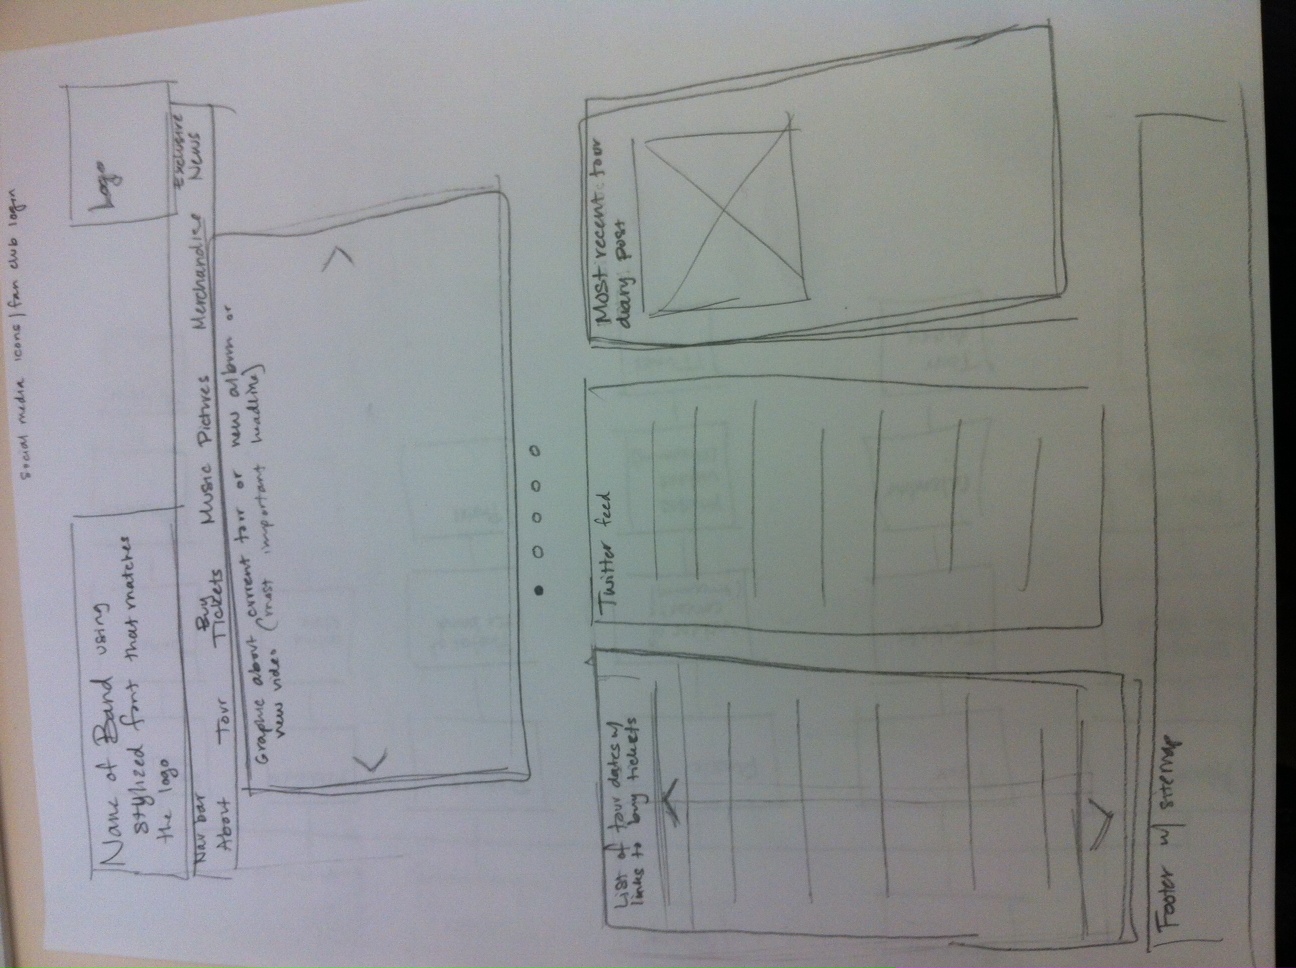 social media icons/fan club login
Name of Band using
stylized font that matches
the logo
Logo
Nav bar
About Tour Buy Tickets Music Pictures Merchandise Exclusive News
Graphic about current tour or new album or
new video (most important headline)
List of tour dates w/
links to buy tickets
Twitter feed
Most recent tour
diary post
Footer w/ sitemap